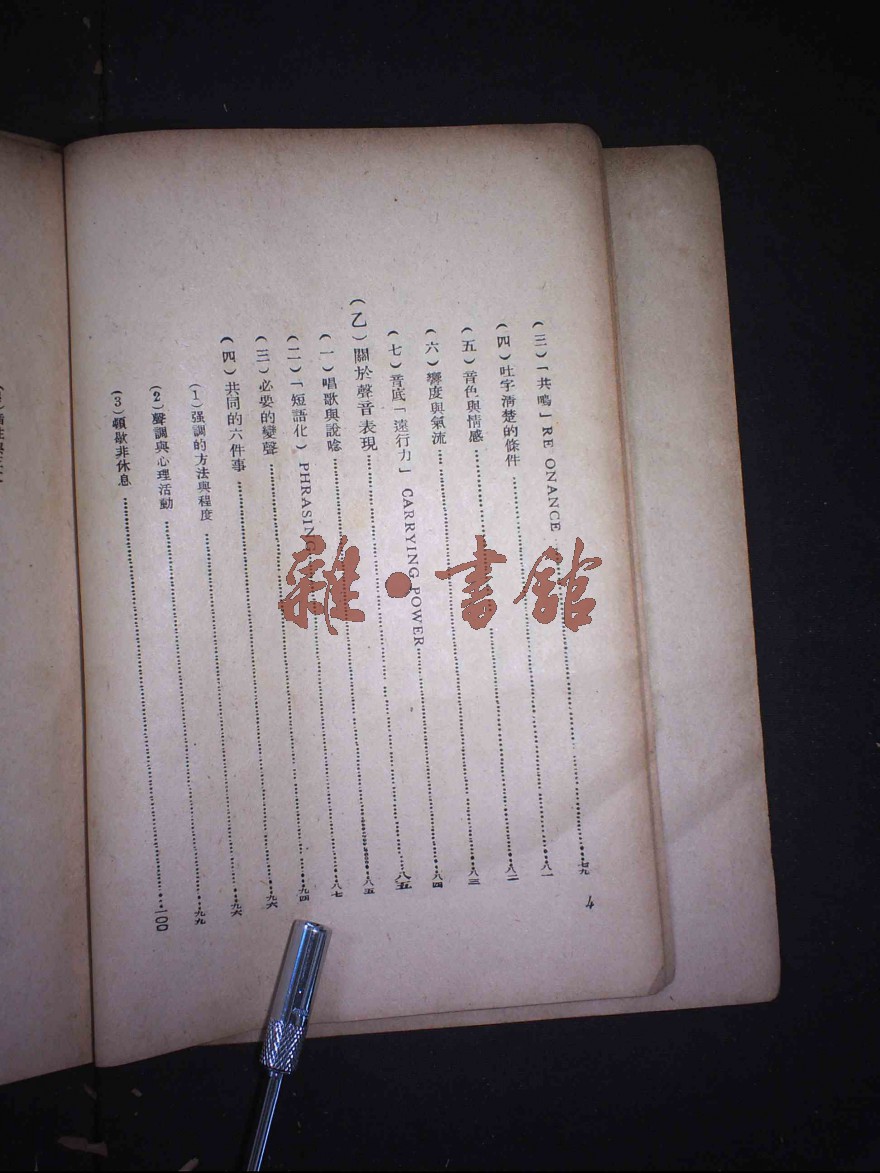 (三)「共鳴」RE ONANCE……七九
(四)吐字清楚的條件……八一
(五)音色與情感……八二
(六)響度與氣流……八三
(七)音底「遠行力」 CARRYING POWER……八四
(乙)關於聲音表現……八五
(一)唱歌與說唸……八五
(二)「短語化) PHRASING……八七
(三)必要的變聲……九四
(四)共同的六件事……九六
(1)强調的方法與程度……九六
(2)聲調與心理活動……九九
(3)頓歇非休息……一00
4
雜·書館